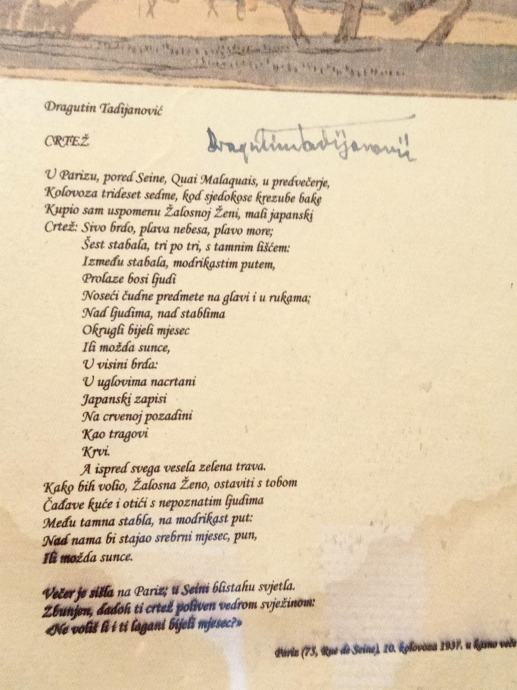 Dragutin Tadijanović
CRTEŽ
Dragutin Tadijanović
U Parizu, pored Seine, Quai Malaquais, u predvečerje,
Kolovoza trideset sedme, kod sjedokose krezube bake
Kupio sam uspomenu Žalosnoj Ženi, mali japanski
Crtež: Sivo brdo, plava nebesa, plavo more;
Šest stabala, tri po tri, s tamnim lišćem:
Između stabala, modrikastim putem,
Prolaze bosi ljudi
Noseći čudne predmete na glavi i u rukama;
Nad ljudima, nad stablima
Okrugli bijeli mjesec
Ili možda sunce,
U visini brda:
U uglovima nacrtani
Japanski zapisi
Na crvenoj pozadini
Kao tragovi
Krvi.
A ispred svega vesela zelena trava.
Kako bih volio, Žalosna Ženo, ostaviti s tobom
Čađave kuće i otići s nepoznatim ljudima
Među tamna stabla, na modrikast put:
Nad nama bi stajao srebrni mjesec, pun,
Ili možda sunce.
Večer je sišla na Pariz; u Seini blistahu svjetla.
Zbunjen, dadoh ti crtež poliven vedrom svježinom:
«Ne voliš li i ti lagani bijeli mjesec?»
Pariz (75, Rue de Seine), 10. kolovoza 1937. u kasno veče